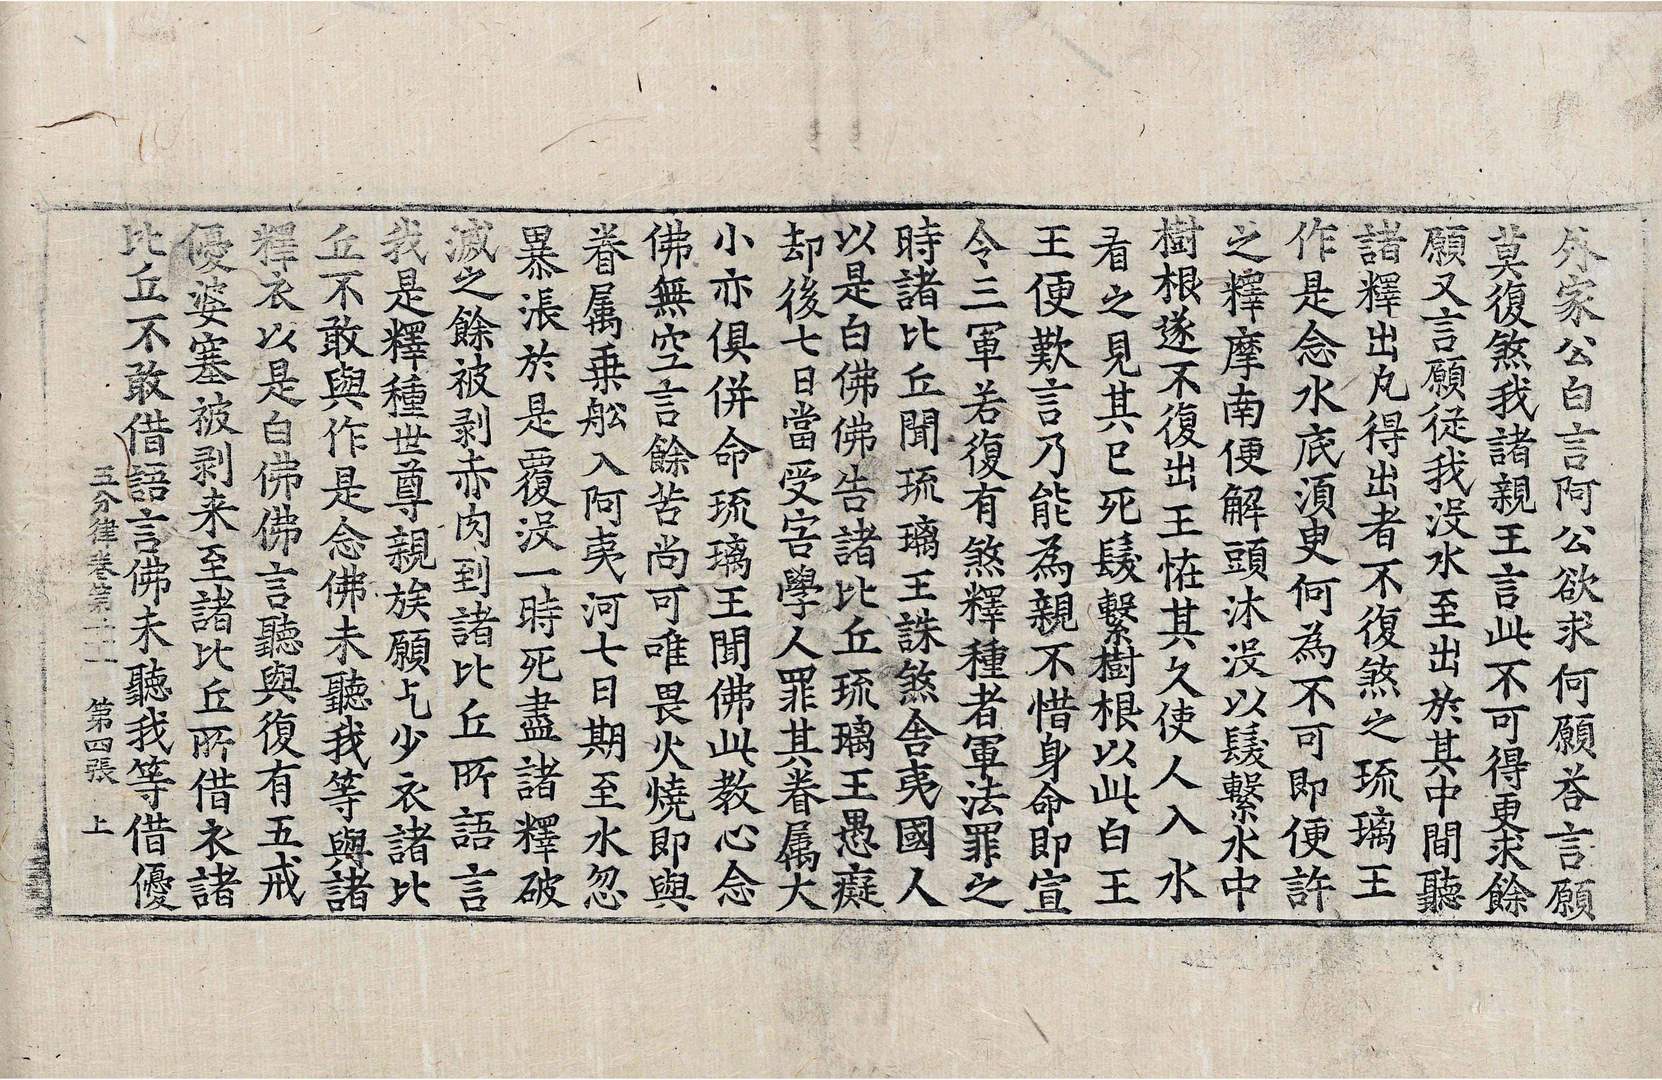 外家公白言阿公欲求何願荅言願
莫復煞我諸親王言此不可得更求餘
願又言願從我没水至出於其中閒聽
諸釋出凡得出者不復煞之琉璃王
作是念水底湏臾何為不可即便許
之釋摩南便解頭沐没以髮繫水中
樹根遂不復出王恠其久使人入水
看之見其已死髮繫樹根以此白王
王便歎言乃能為親不惜身命即宣
令三軍若復有煞釋種者軍法罪之
時諸比丘聞琉璃王誅煞舍夷國人
以是白佛佛告諸比丘琉璃王愚癡
却後七日當受害學人罪其眷属大
小亦俱併命琉璃王聞佛此教心念
佛無空言餘苦尚可唯畏火燒即與
眷属乗舩入阿夷河七日期至水忽
暴漲於是覆没一時死盡諸釋破
滅之餘被剥赤肉到諸比丘所語言
我是釋種世尊親族願乞少衣諸比
丘不敢與作是念佛未聽我等與諸
釋衣以是白佛佛言聽與復有五戒
優婆塞被剥来至諸比丘所借衣諸
比丘不敢借語言佛未聽我等借優
五分律卷第二十一 第四張 上